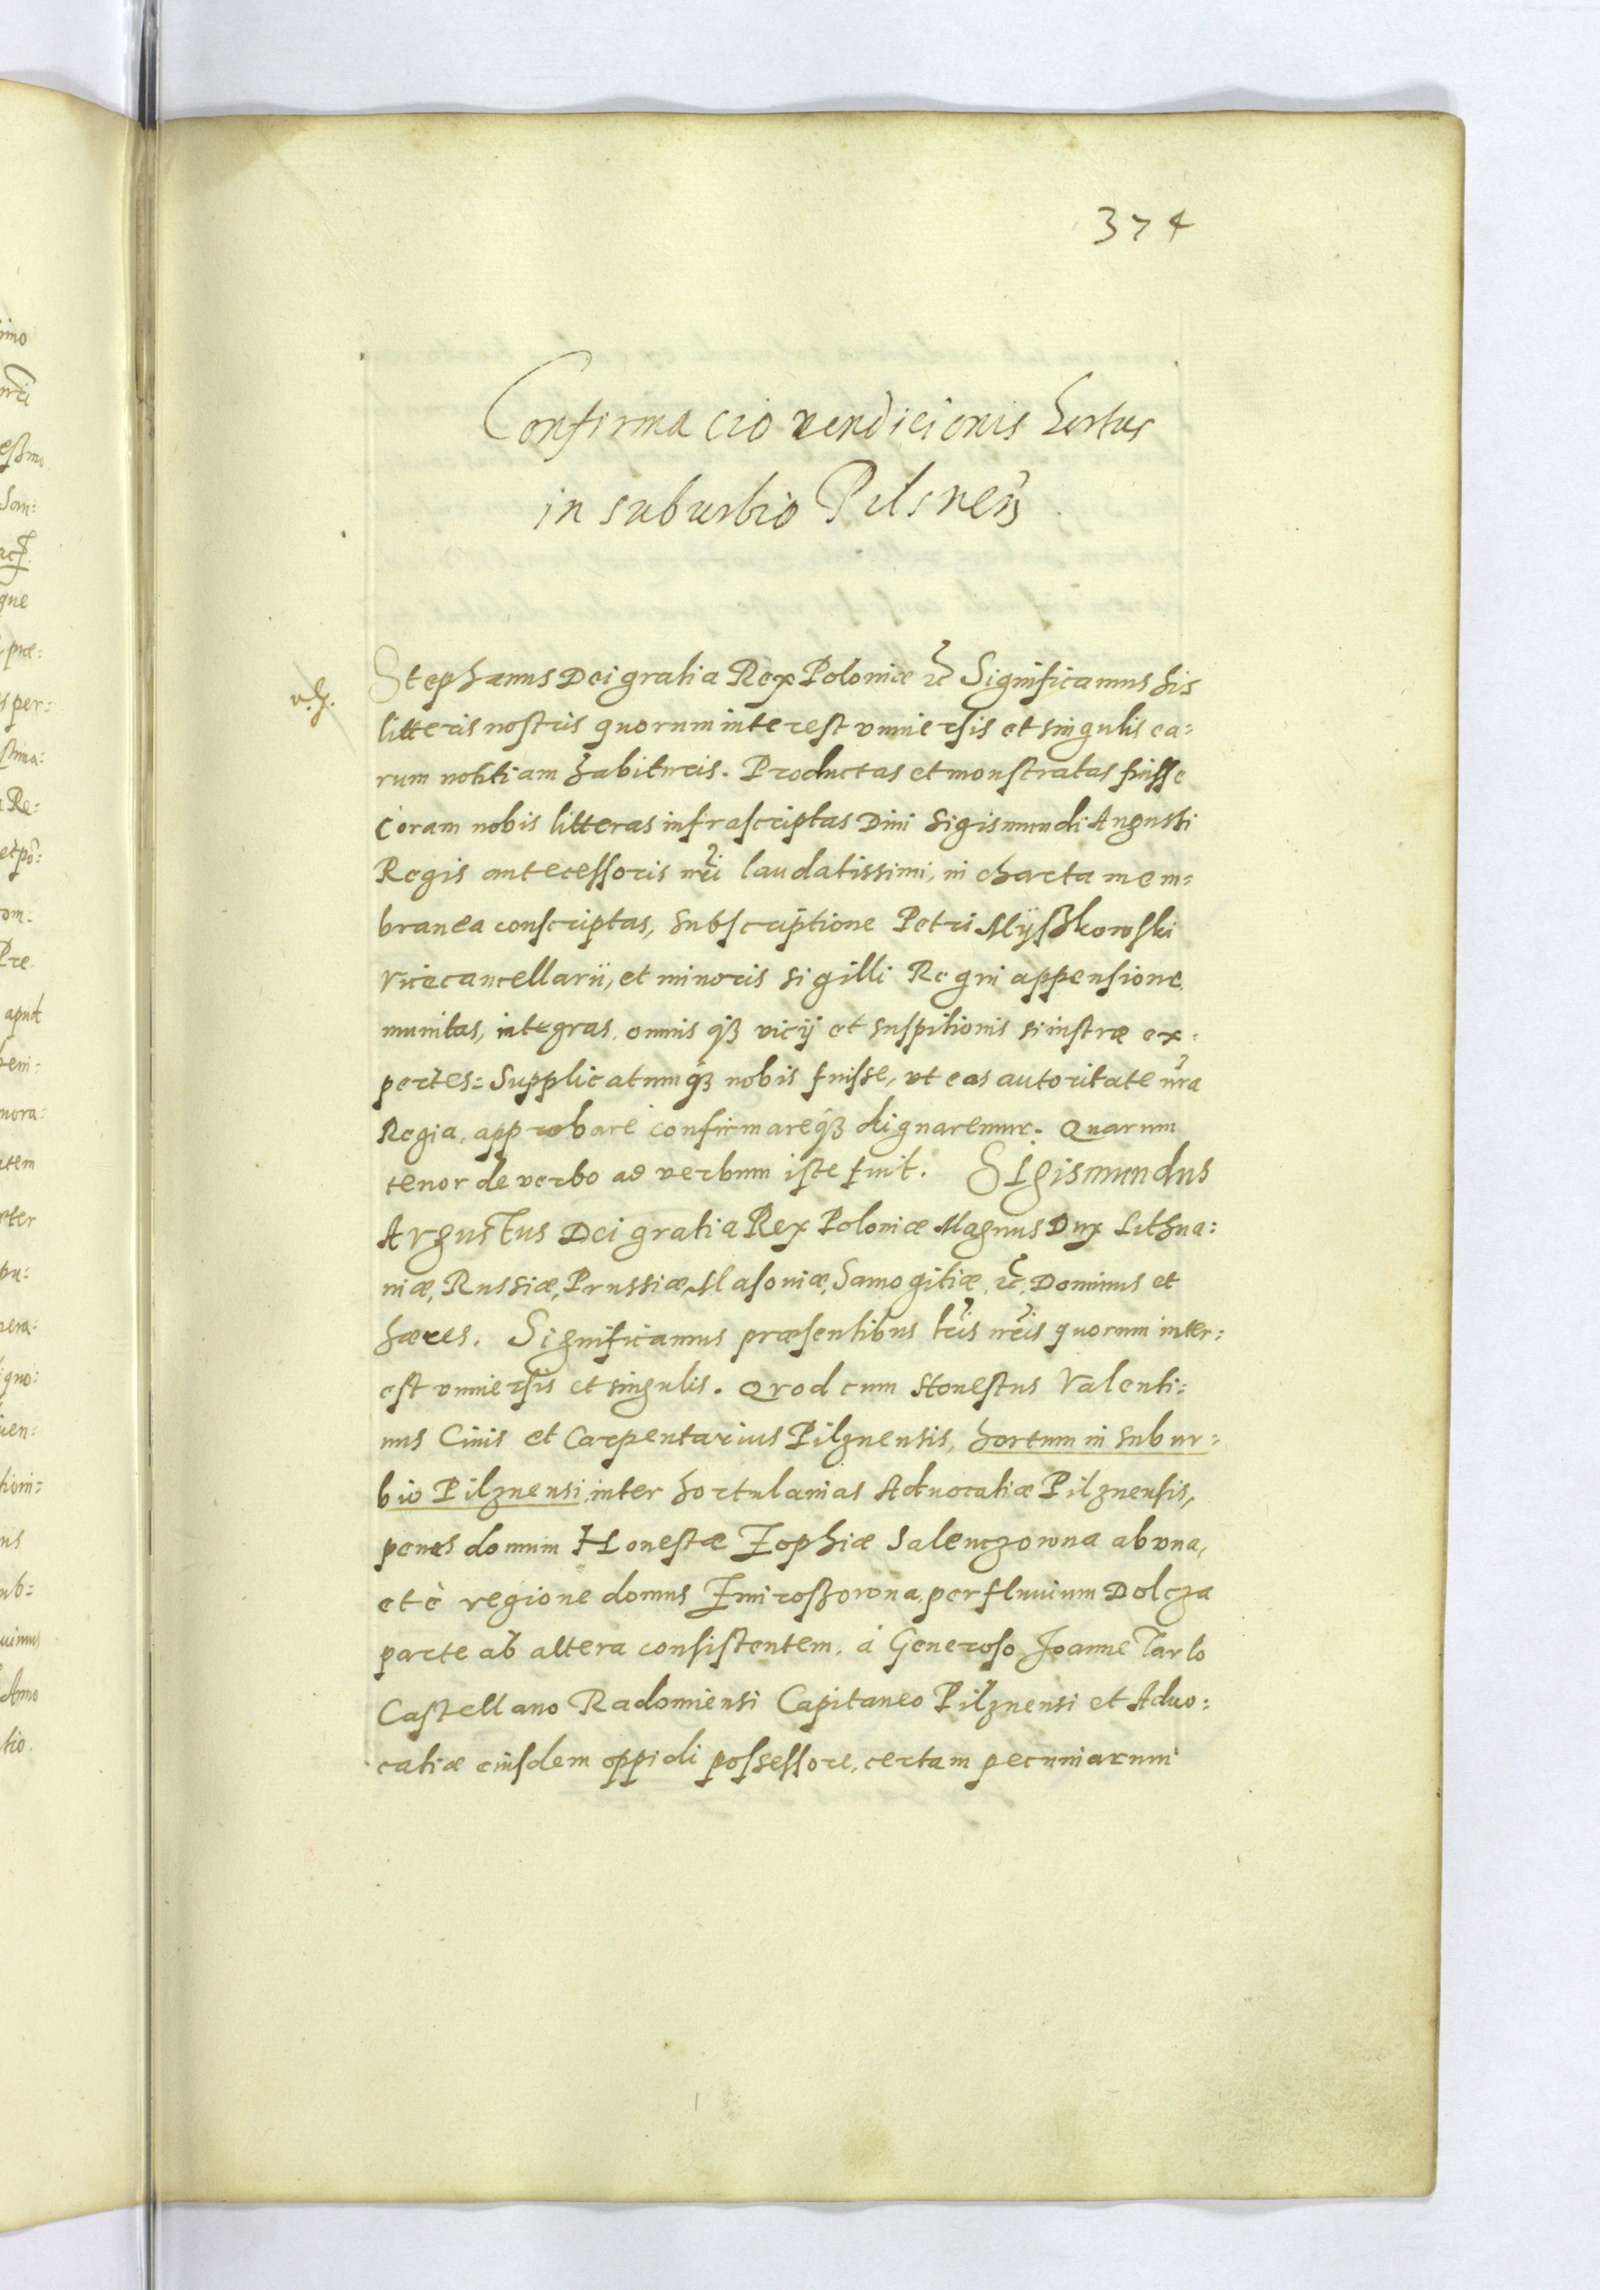 374
Confirmacio vendicionis hortus
in suburbio Pilsneñ
Stephanus Dei gratia Rex Poloniæ &c Significamus his
litteris nostris quorum interest vniuersis et singulis ea:
rum notitiam habituris. Productas et monstratas fuisse
coram nobis litteras infrascriptas Diui Sigismundi Augusti
Regis antecessoris nri laudatissimi, in charta mem:
branea conscriptas, subscriptione Petri Myßkowski
Vicecancellarii, et minoris sigilli Regni appensione
munitas, integras, omnisq3 vicij et suspitionis sinistræ ex:
pertes: Supplicatumq3 nobis fuisse, vt eas autoritate nra
Regia, approbare confirmareq3 dignaremur. Quarum
tenor de verbo ad verbum iste fuit. Sigismundus
Avgustus Dei gratia Rex Poloniæ Magnus Dux Lithua:
niæ, Russiæ, Prussiæ, Masouiæ, Samogitiæ, &c, Dominus et
hæres. Significamus præsentibus lris nris quorum inter:
est vniuersis et singulis. Qvod cum Honestus Valenti:
nus Ciuis et Carpentarius Pilznensis, hortum in subur:
bio Pilznensi, inter hortulanias Aduocatiæ Pilznensis,
penes domum Honestæ Zophiæ Salenczowna ab vna,
et è regione domus Zmiroßowna, per fluuium Dolcza
parte ab altera consistentem, á Generoso Joanne Tarlo
Castellano Radomiensi Capitaneo Pilznensi et Aduo:
catiæ eiusdem oppidi possessore, certam pecuniarum